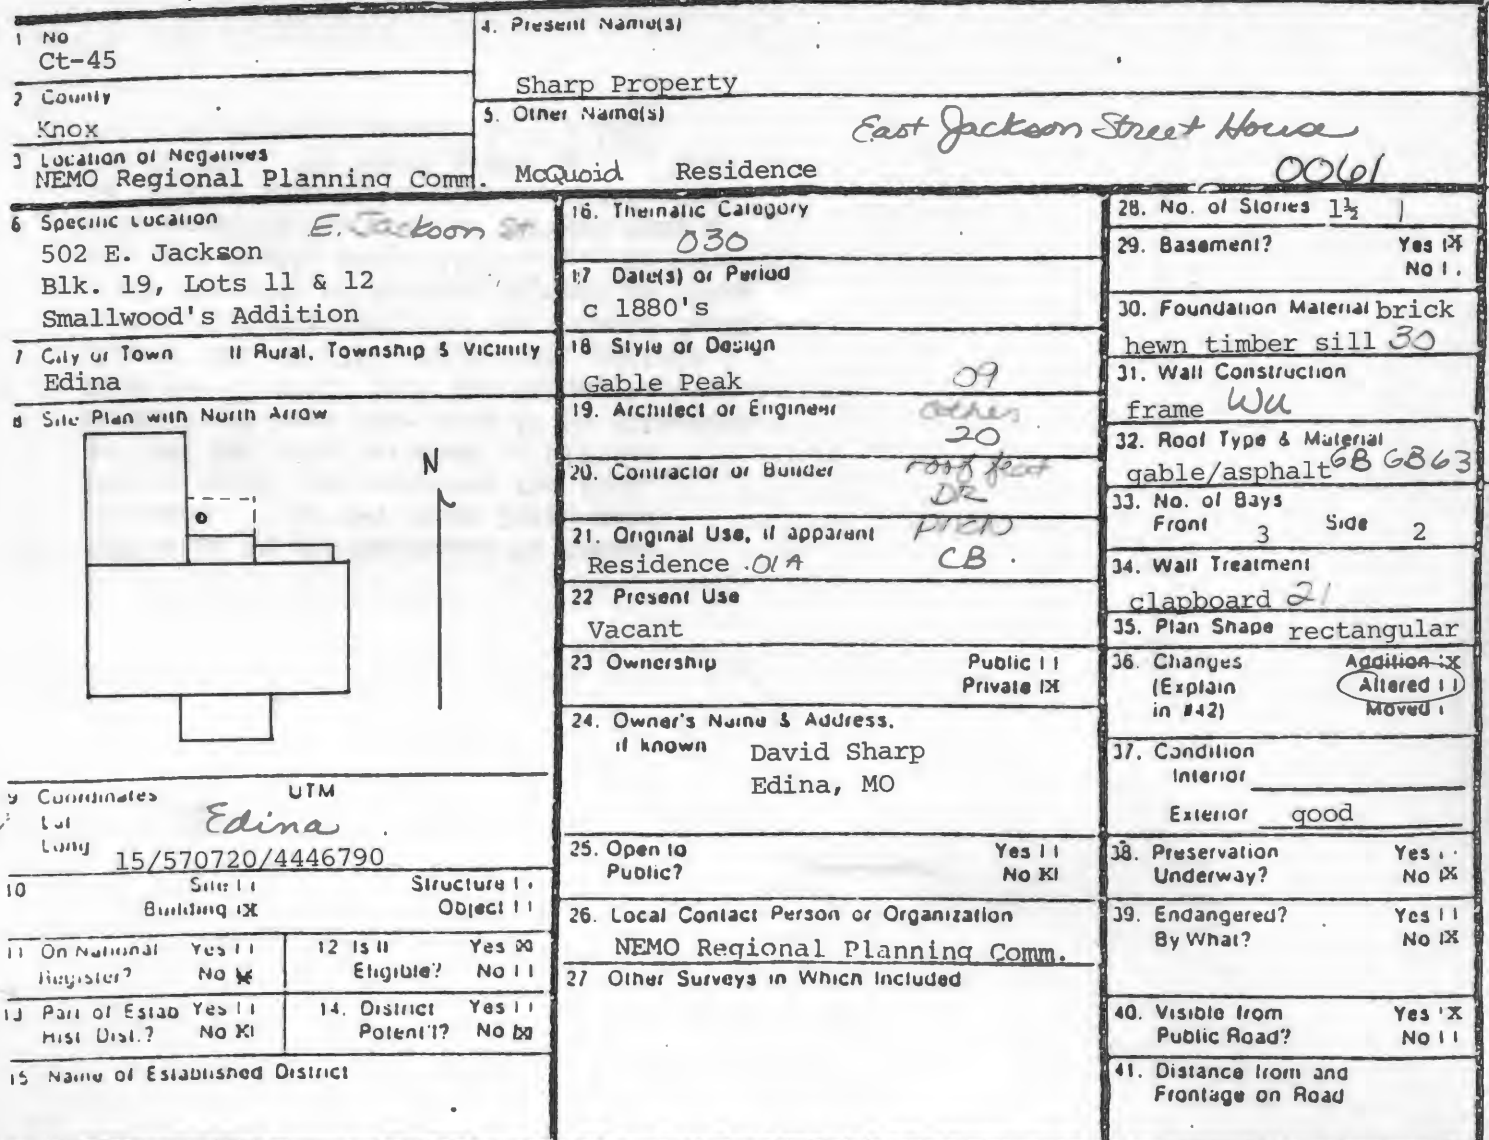 1 No
Ct-45
2 County
Knox
3 Location of Negatives
NEMO Regional Planning Comm.
4. Present Name(s)
Sharp Property
5. Other Name(s)
East Jackson Street House
McQuoid Residence
0061
6 Specific Location
E. Jackson St
502 E. Jackson
Blk. 19, Lots 11 & 12
Smallwood's Addition
7 City or Town If Rural, Township & Vicinity
Edina
8 Site Plan with North Arrow
N
9 Coordinates UTM
Lat
Long
Edina
15/570720/4446790
10 Site Structure
Building X Object
11 On National Register? Yes No X
12 Is It Eligible? Yes X No
13 Part of Estab Hist Dist.? Yes No X
14. District Potent'l? Yes No X
15 Name of Established District
16. Thematic Category
030
17 Date(s) or Period
c 1880's
18 Style or Design
Gable Peak 09
19. Architect or Engineer
other
20
20. Contractor or Builder
roof feat
DR
21. Original Use, if apparent
Residence .01A
CB
22 Present Use
Vacant
23 Ownership Public
Private X
24. Owner's Name & Address,
if known
David Sharp
Edina, MO
25. Open to Public? Yes No X
26. Local Contact Person or Organization
NEMO Regional Planning Comm.
27 Other Surveys in Which Included
28. No. of Stories 1½
29. Basement? Yes X
No
30. Foundation Material brick
hewn timber sill 30
31. Wall Construction
frame WU
32. Roof Type & Material
gable/asphalt GB GB63
33. No. of Bays
Front 3 Side 2
34. Wall Treatment
clapboard 21
35. Plan Shape rectangular
36. Changes Addition X
(Explain Altered
in #42) Moved
37. Condition
Interior
Exterior good
38. Preservation Underway? Yes No X
39. Endangered? Yes
By What? No X
40. Visible from Public Road? Yes X No
41. Distance from and
Frontage on Road